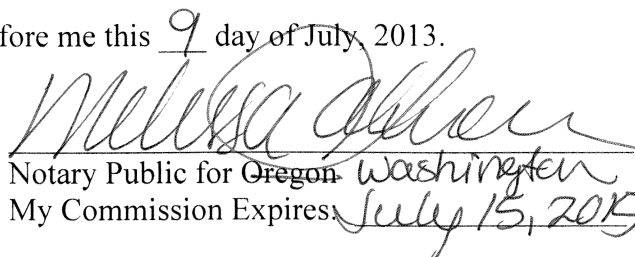 fore me this 9 day of July, 2013.
Melissa
Notary Public for Oregon Washington
My Commission Expires: July 15, 2015